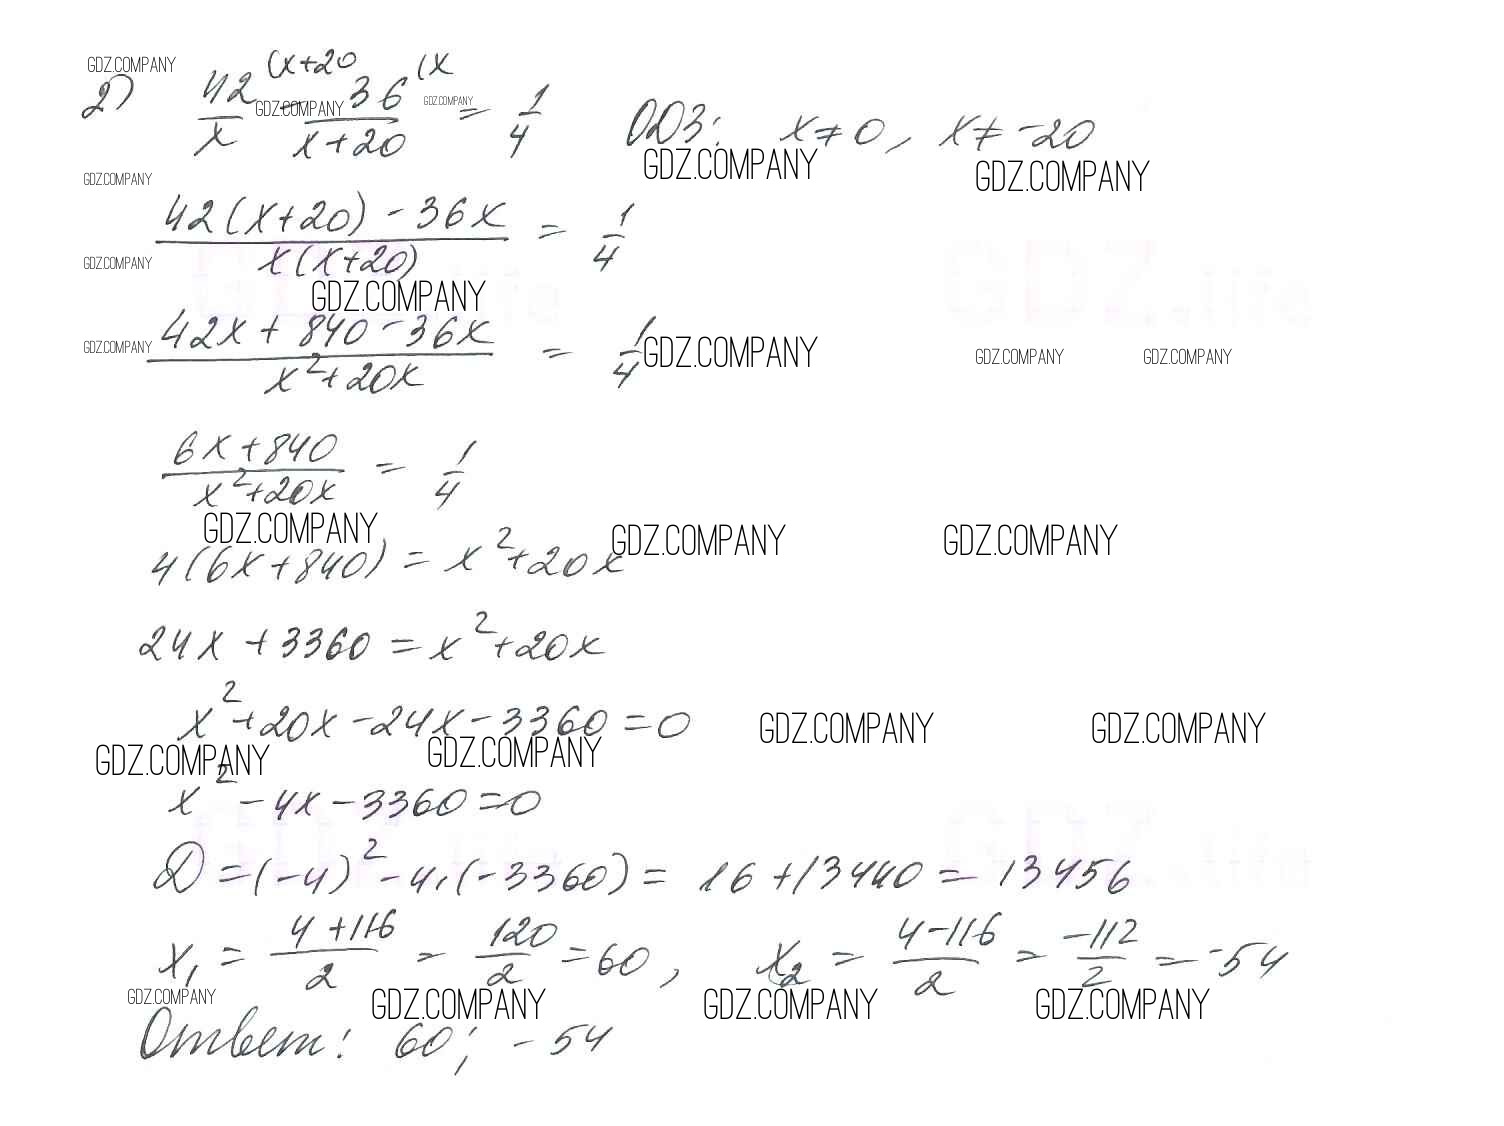 GDZ.COMPANY
2) 42/x (x+20 - 36/(x+20) (x = 1/4 ОДЗ: x ≠ 0, x ≠ -20
GDZ.COMPANY GDZ.COMPANY
GDZ.COMPANY GDZ.COMPANY
GDZ.COMPANY
(42(x+20) - 36x)/(x(x+20)) = 1/4
GDZ.COMPANY
GDZ.life GDZ.life
GDZ.COMPANY
(42x + 840 - 36x)/(x²+20x) = 1/4
GDZ.COMPANY GDZ.COMPANY GDZ.COMPANY GDZ.COMPANY
(6x+840)/(x²+20x) = 1/4
GDZ.COMPANY GDZ.COMPANY GDZ.COMPANY
4(6x+840) = x²+20x
24x + 3360 = x²+20x
x²+20x-24x-3360=0
GDZ.COMPANY GDZ.COMPANY GDZ.COMPANY GDZ.COMPANY
x²-4x-3360=0
GDZ.life GDZ.life
D=(-4)²-4·(-3360)= 16+13440=13456
x₁ = (4+116)/2 = 120/2 =60, x₂ = (4-116)/2 = -112/2 = -54
GDZ.COMPANY GDZ.COMPANY GDZ.COMPANY GDZ.COMPANY
Ответ: 60; -54